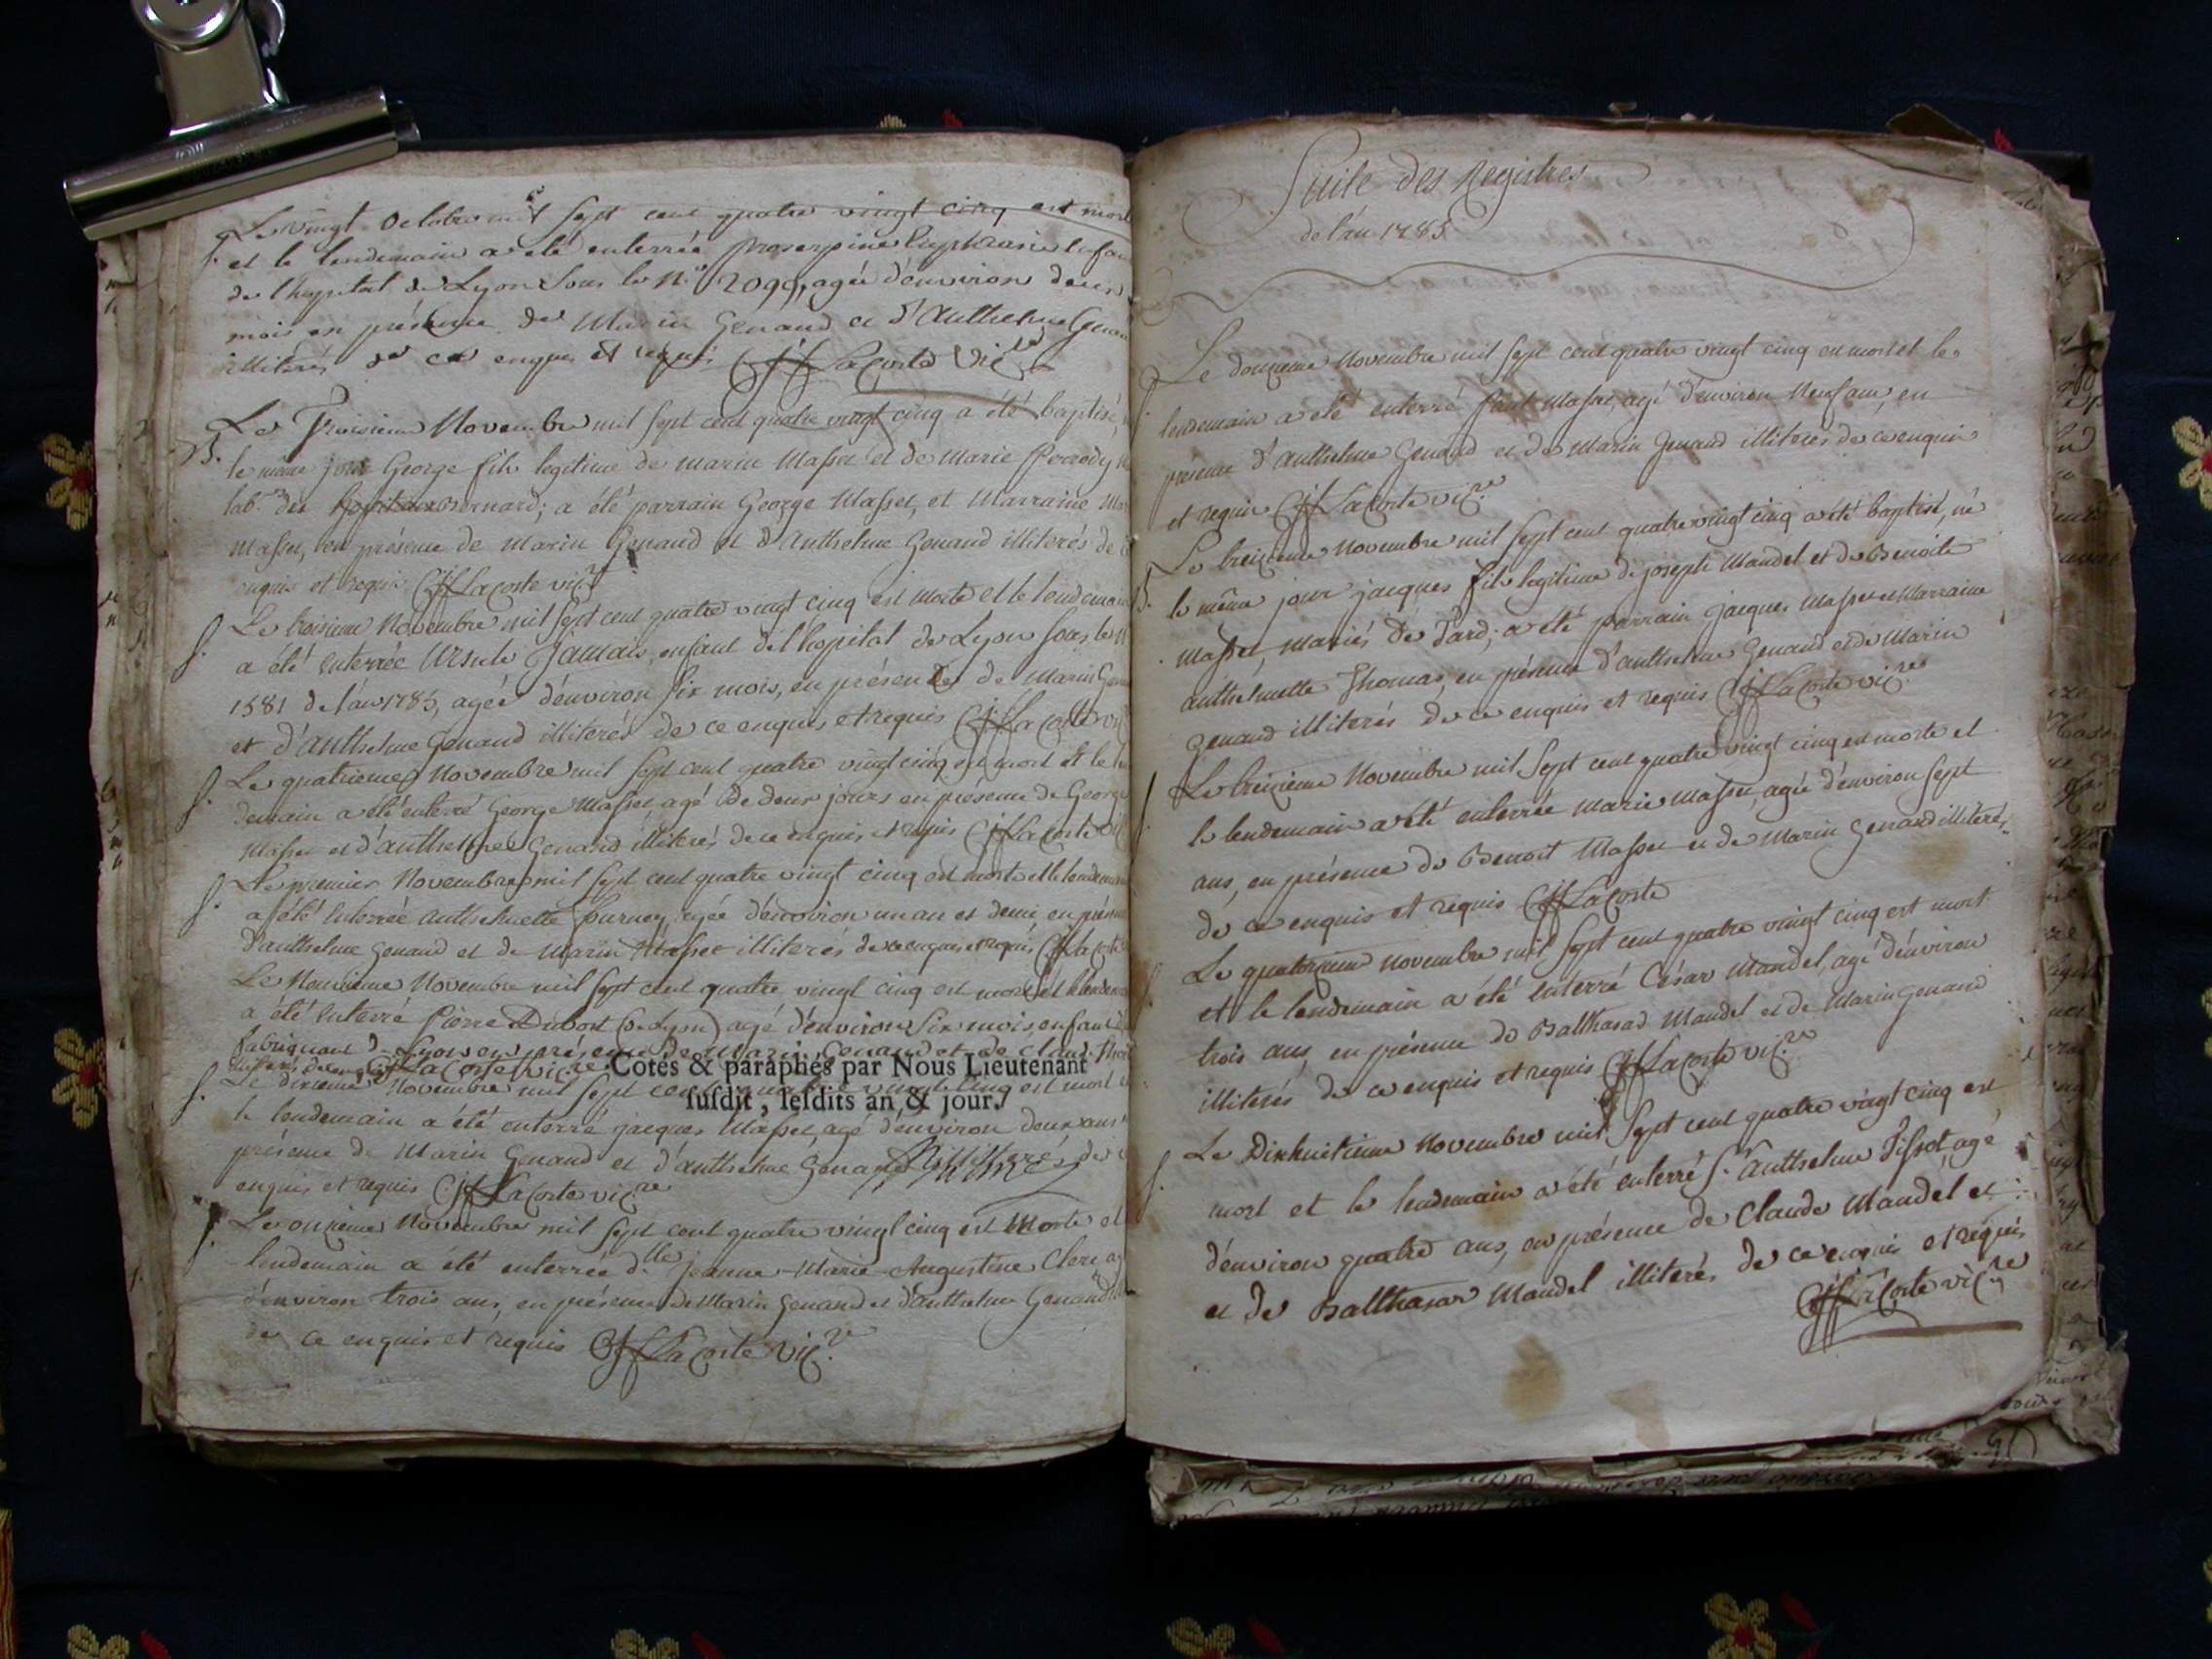 Le vingt octobre mil sept cent quatre vingt cinq est mort
et le lendemain a été enterrée proserpine Euphrasie enfan
de l'hopital de Lyon sous le N.° 2099, agée d'environ deux
mois en présence de Marin Genaud et d'Anthelme Genau
illiterés de ce enquis et requis CffLaCoste Vic.re
B. Le Troisieme Novembre mil sept cent quatre vingt cinq a été baptisé,
le meme jour George fils legitime de marin Masset et de Marie Perrody
lab.rs des Bernard; a été parrain George Masset, et Marraine Ma
Masset, en présence de Marin Genaud et d'Anthelme Genaud illiterés de
enquis et requis CffLacoste vic.re
S. Le troisieme Novembre mil sept cent quatre vingt cinq est morte et le lendemain
a été enterrée Ursule Jamais, enfant de l'hopital de Lyon sous le N
1581 de l'an 1785, agée d'environ six mois, en présence de Marin Gen
et d'anthelme Genaud illiterés de ce enquis et requis CffLaCoste vic
S. Le quatrieme Novembre mil sept cent quatre vingt cinq est mort et le len
demain a été enterré George Masset, agé de deux jours en présence de George
Masset et d'anthelme Genaud illiterés de ce enquis et requis CffLaCoste vic
S. Le premier Novembre mil sept cent quatre vingt cinq est morte et le lendemain
a été enterrée anthelmette agée d'environ un an et demi en présen
d'anthelme Genaud et de Marin Masset illiterés de ce enquis et requis CffLaCoste
Le Neuvieme Novembre mil sept cent quatre vingt cinq est mort et le lendem
a été enterré Pierre Dubost (de Lyon) agé d'environ six mois, enfant d
fabriquant de Lyon en présence de Marin Genaud et de Claude
CffLaCoste vic.re
Cotés & paraphés par Nous Lieutenant
susdit, lesdits an & jour.
S. Le dixieme Novembre mil sept cent quatre vingt cinq est mort
le lendemain a été enterré jacques Masset, agé d'environ deux ans
présence de Marin Genaud et d'anthelme Genaud illiterés de
enquis et requis CffLaCoste vic.re
S. Le onzieme Novembre mil sept cent quatre vingt cinq est Morte et
lendemain a été enterrée d.lle jeanne-Marie-Augustine Clerc ag
d'environ trois ans, en présence de Marin Genaud et d'anthelme Genaud
de ce enquis et requis CffLaCoste Vic.re
Suite des Registres
de l'an 1785
S. Le douzieme Novembre mil sept cent quatre vingt cinq est mort et le
lendemain a été enterré Masset, agé d'environ Neuf ans, en
présence d'anthelme Genaud et de Marin Genaud illiterés de ce enquis
et requis CffLaCoste vic.re
B. Le treizieme Novembre mil sept cent quatre vingt cinq a été baptisé, né
le même jour jacques fils legitime de joseph Mandel et de Benoite
Masset, mariés de Tard; a été parrain jacques Masset et Marraine
anthelmette Thomas, en présence d'anthelme Genaud et de Marin
Genaud illiterés de ce enquis et requis CffLaCoste vic.re
Le treizieme Novembre mil sept cent quatre vingt cinq est morte et
le lendemain a été enterrée Marie Masset, agée d'environ sept
ans, en présence de Benoit Masset et de Marin Genaud illiterés,
de ce enquis et requis CffLaCoste
S. Le quatorzieme Novembre mil sept cent quatre vingt cinq est mort
et le lendemain a été enterré César Mandel, agé d'environ
trois ans, en présence de Balthasad Mandel et de Marin Genaud
illiterés de ce enquis et requis CffLaCoste vic.re
S. Le Dixhuitieme Novembre mil Sept cent quatre vingt cinq est
mort et le lendemain a été enterré S.r Anthelme Tissot, agé
d'environ quatre ans, en présence de Claude Mandel et
et de Balthasar Mandel illiterés de ce enquis et requis
CffLaCoste vic.re